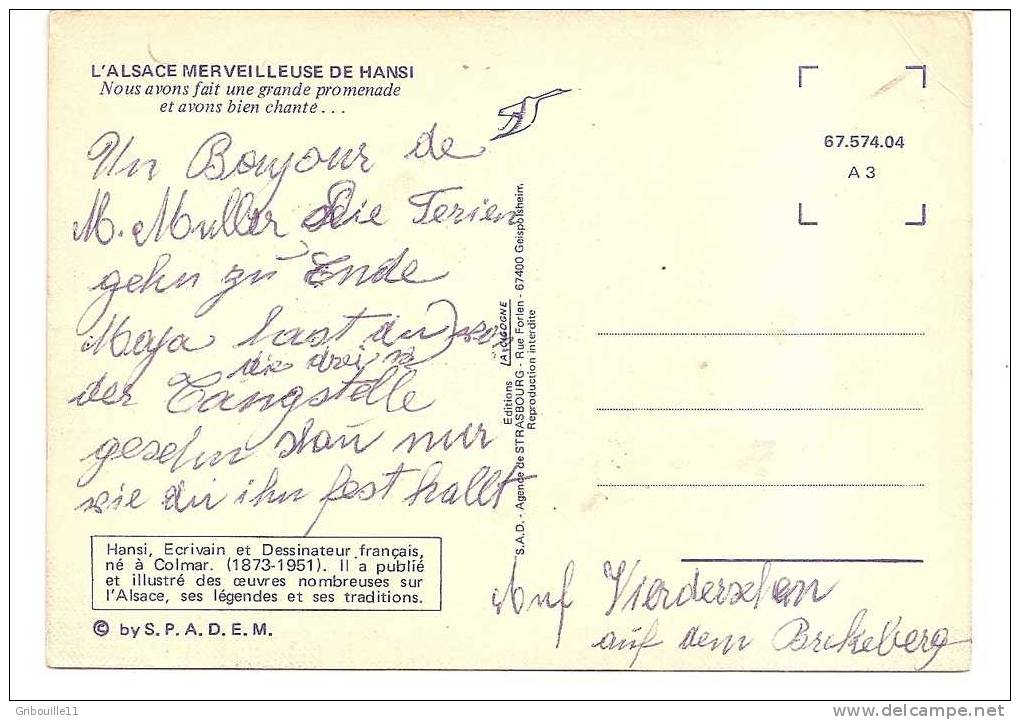 L'ALSACE MERVEILLEUSE DE HANSI
Nous avons fait une grande promenade
et avons bien chanté...
Un Bonjour de
M. Muller Die Ferien
gehn zu Ende
Maja hast du
die drei
der Tangstelle
gesehn schau nur
wie du ihn fest hallt
Hansi, Ecrivain et Dessinateur français,
né à Colmar. (1873-1951). Il a publié
et illustré des œuvres nombreuses sur
l'Alsace, ses légendes et ses traditions.
© by S.P.A.D.E.M.
Editions LA CIGOGNE
S.A.D. - Agence de STRASBOURG - Rue Forlen - 67400 Geispolsheim.
Reproduction interdite
67.574.04
A 3
Auf Vierdersehen
auf dem Brkeberg
Gribouille11
www.delcampe.net